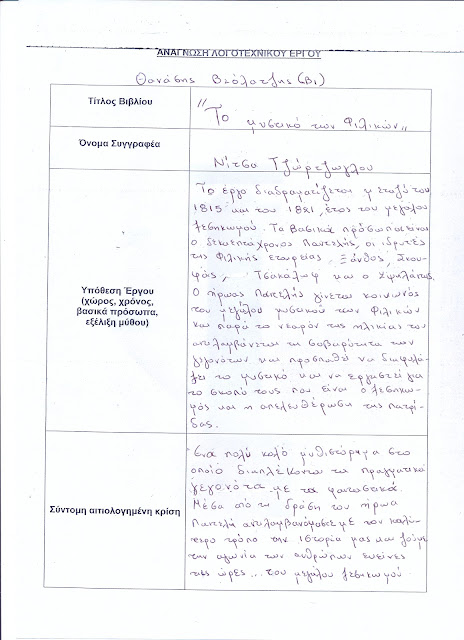 ΑΝΑΓΝΩΣΗ ΛΟΓΟΤΕΧΝΙΚΟΥ ΕΡΓΟΥ
Θανάσης Βιολατζής (Β1)
Τίτλος Βιβλίου
"Το
μυστικό των Φιλικών"
Όνομα Συγγραφέα
Νίτσα Τζώρτζογλου
Υπόθεση Έργου
(χώρος, χρόνος,
βασικά πρόσωπα,
εξέλιξη μύθου)
Το έργο διαδραματίζεται μεταξύ του
1815 και του 1821, έτος του μεγάλου
ξεσηκωμού. Τα βασικά πρόσωπα είναι
ο δεκαεπτάχρονος Παντελής, οι ιδρυτές
της Φιλικής εταιρείας Ξάνθος, Σκου-
φάς, Τσακάλωφ και ο Υψηλάντης.
Ο ήρωας Παντελής γίνεται κοινωνός
του μεγάλου μυστικού των Φιλικών
και παρά το νεαρόν της ηλικίας του
αντιλαμβάνεται τη σοβαρότητα των
γεγονότων και προσπαθεί να διαφυλά-
ξει το μυστικό και να εργαστεί για
το σκοπό τους που είναι ο ξεσηκω-
μός και η απελευθέρωση της πατρί-
δας.
Σύντομη αιτιολογημένη κρίση
Ένα πολύ καλό μυθιστόρημα στο
οποίο διαπλέκονται τα πραγματικά
γεγονότα με τα φανταστικά.
Μέσα από τη δράση του ήρωα
Παντελή αντιλαμβανόμαστε με τον καλύ-
τερο τρόπο την ιστορία μας και ζούμε
την αγωνία των ανθρώπων εκείνες
τις ώρες... του μεγάλου ξεσηκωμού.